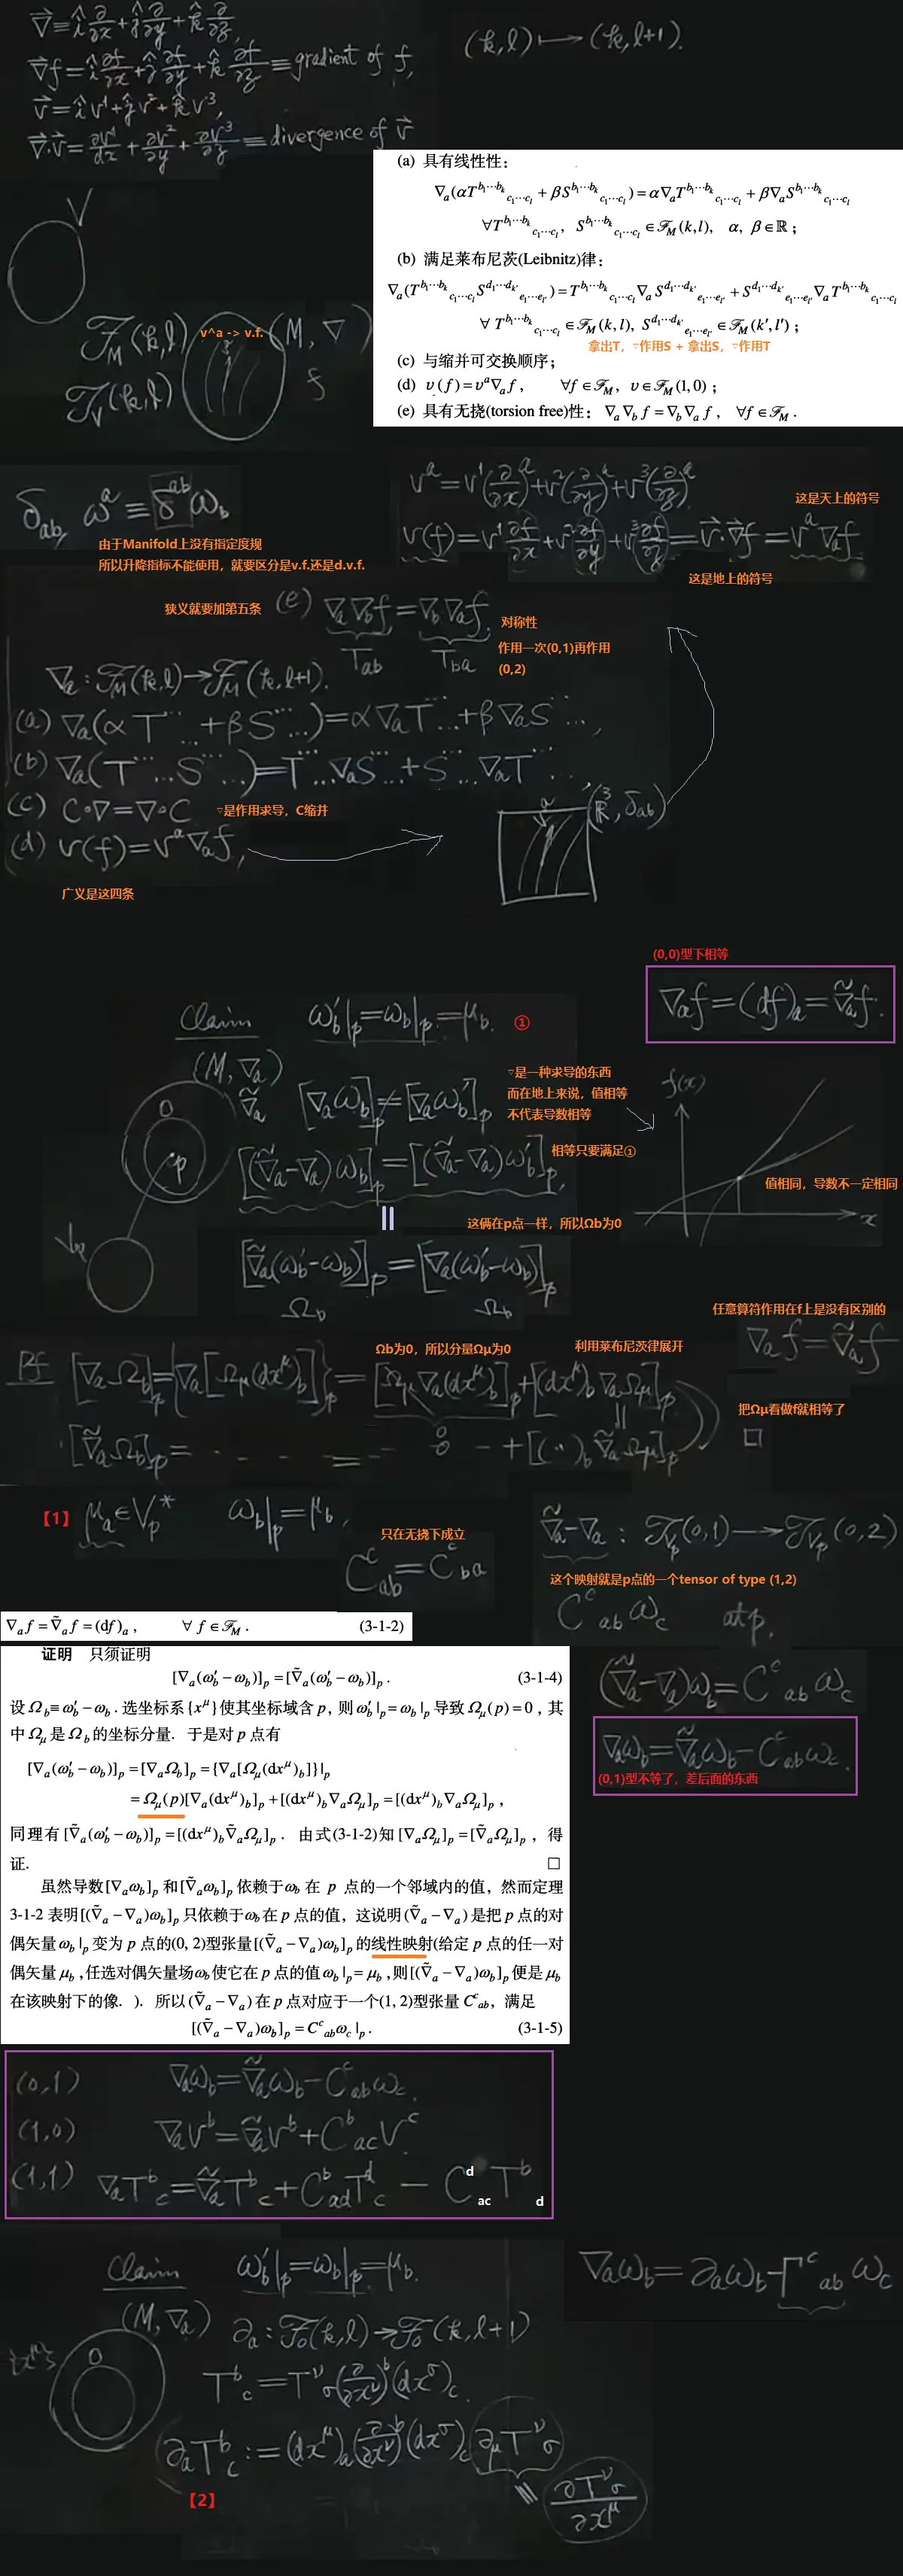 ∇⃗ = î ∂/∂x + ĵ ∂/∂y + k̂ ∂/∂z,
∇⃗f = î ∂f/∂x + ĵ ∂f/∂y + k̂ ∂f/∂z ≡ gradient of f,
v⃗ = î v¹ + ĵ v² + k̂ v³,
∇⃗·v⃗ = ∂v¹/∂x + ∂v²/∂y + ∂v³/∂z ≡ divergence of v⃗
(k,l) ⟼ (k,l+1).
(a) 具有线性性:
∇_a(αT^{b₁⋯b_k}_{c₁⋯c_l} + βS^{b₁⋯b_k}_{c₁⋯c_l}) = α∇_aT^{b₁⋯b_k}_{c₁⋯c_l} + β∇_aS^{b₁⋯b_k}_{c₁⋯c_l}
∀T^{b₁⋯b_k}_{c₁⋯c_l}, S^{b₁⋯b_k}_{c₁⋯c_l} ∈ ℱ_M(k,l), α, β∈ℝ;
(b) 满足莱布尼茨(Leibnitz)律:
∇_a(T^{b₁⋯b_k}_{c₁⋯c_l} S^{d₁⋯d_k'}_{e₁⋯e_l'}) = T^{b₁⋯b_k}_{c₁⋯c_l} ∇_a S^{d₁⋯d_k'}_{e₁⋯e_l'} + S^{d₁⋯d_k'}_{e₁⋯e_l'} ∇_a T^{b₁⋯b_k}_{c₁⋯c_l}
∀ T^{b₁⋯b_k}_{c₁⋯c_l} ∈ ℱ_M(k,l), S^{d₁⋯d_k'}_{e₁⋯e_l'} ∈ ℱ_M(k',l');
拿出T，▽作用S + 拿出S，▽作用T
(c) 与缩并可交换顺序;
(d) v(f) = v^a∇_a f, ∀f∈ℱ_M, v∈ℱ_M(1,0);
(e) 具有无挠(torsion free)性: ∇_a∇_b f = ∇_b∇_a f, ∀f∈ℱ_M.
V
ℱ_M(k,l)
v^a -> v.f.
(M, ∇)
𝒯_V(k,l)
f
δ_ab, ω^a ≡ δ^{ab}ω_b
由于Manifold上没有指定度规
所以升降指标不能使用，就要区分是v.f.还是d.v.f.
v^a = v¹(∂/∂x)^a + v²(∂/∂y)^a + v³(∂/∂z)^a.
这是天上的符号
v(f) = v¹ ∂f/∂x + v² ∂f/∂y + v³ ∂f/∂z = v⃗·∇⃗f = v^a∇_a f
这是地上的符号
狭义就要加第五条
(e) ∇_a∇_b f = ∇_b∇_a f.
T_ab T_ba
对称性
作用一次(0,1)再作用
(0,2)
∇_a : ℱ_M(k,l) → ℱ_M(k,l+1).
(a) ∇_a(αT⋯ + βS⋯) = α∇_aT⋯ + β∇_aS⋯,
(b) ∇_a(T⋯S⋯) = T⋯∇_aS⋯ + S⋯∇_aT⋯
(c) C∘∇ = ∇∘C
▽是作用求导，C缩并
(d) v(f) = v^a∇_a f,
(ℝ³, δ_ab)
广义是这四条
(0,0)型下相等
∇_a f = (df)_a = ∇̃_a f.
Claim ω'_b|_p = ω_b|_p = μ_b.
①
(M, ∇_a)
∇̃_a
[∇_aω_b]_p ≠ [∇_aω'_b]_p
▽是一种求导的东西
而在地上来说，值相等
不代表导数相等
f(x)
[(∇̃_a−∇_a)ω_b]_p = [(∇̃_a−∇_a)ω'_b]_p
相等只要满足①
O
p
值相同，导数不一定相同
x
这俩在p点一样，所以Ωb为0
V_p
[∇̃_a(ω'_b−ω_b)]_p = [∇_a(ω'_b−ω_b)]_p
Ω_b Ω_b
任意算符作用在f上是没有区别的
∇_a f = ∇̃_a f
Ωb为0，所以分量Ωμ为0
利用莱布尼茨律展开
Pf [∇_aΩ_b]_p = {∇_a[Ω_μ(dx^μ)_b]}_p = [Ω_μ∇_a(dx^μ)_b]_p + [(dx^μ)_b∇_aΩ_μ]_p
把Ωμ看做f就相等了
[∇̃_aΩ_b]_p = - - - - - 0 + [(··)_b ∇̃_aΩ_μ]_p □
【1】
μ_a ∈ V_p* ω_b|_p = μ_b.
只在无挠下成立
C^c_ab = C^c_ba
∇̃_a−∇_a : 𝒯_Vp(0,1) → 𝒯_Vp(0,2)
这个映射就是p点的一个tensor of type (1,2)
C^c_ab ω_c at p.
∇_a f = ∇̃_a f = (df)_a, ∀ f∈ℱ_M. (3-1-2)
证明 只须证明
[∇_a(ω'_b − ω_b)]_p = [∇̃_a(ω'_b − ω_b)]_p. (3-1-4)
设 Ω_b ≡ ω'_b − ω_b. 选坐标系{x^μ}使其坐标域含 p, 则 ω'_b|_p = ω_b|_p 导致 Ω_μ(p) = 0, 其
中 Ω_μ 是 Ω_b 的坐标分量. 于是对 p 点有
[∇_a(ω'_b − ω_b)]_p = [∇_aΩ_b]_p = {∇_a[Ω_μ(dx^μ)_b]}|_p
= Ω_μ(p)[∇_a(dx^μ)_b]_p + [(dx^μ)_b∇_aΩ_μ]_p = [(dx^μ)_b∇_aΩ_μ]_p,
同理有 [∇̃_a(ω'_b − ω_b)]_p = [(dx^μ)_b∇̃_aΩ_μ]_p. 由式(3-1-2)知 [∇_aΩ_μ]_p = [∇̃_aΩ_μ]_p, 得
证. □
虽然导数[∇_aω_b]_p 和[∇̃_aω_b]_p 依赖于ω_b 在 p 点的一个邻域内的值, 然而定理
3-1-2 表明[(∇̃_a − ∇_a)ω_b]_p 只依赖于ω_b在 p 点的值, 这说明(∇̃_a − ∇_a)是把 p 点的对
偶矢量 ω_b|_p 变为 p 点的(0, 2)型张量[(∇̃_a − ∇_a)ω_b]_p 的线性映射(给定 p 点的任一对
偶矢量 μ_b, 任选对偶矢量场ω_b使它在 p 点的值ω_b|_p = μ_b, 则[(∇̃_a − ∇_a)ω_b]_p便是 μ_b
在该映射下的像. ). 所以(∇̃_a − ∇_a)在 p 点对应于一个(1, 2)型张量 C^c_ab, 满足
[(∇̃_a − ∇_a)ω_b]_p = C^c_abω_c|_p. (3-1-5)
(∇̃_a−∇_a)ω_b = C^c_ab ω_c
∇_aω_b = ∇̃_aω_b − C^c_ab ω_c.
(0,1)型不等了，差后面的东西
(0,1) ∇_aω_b = ∇̃_aω_b − C^c_ab ω_c.
(1,0) ∇_aV^b = ∇̃_aV^b + C^b_ac V^c
(1,1) ∇_aT^b_c = ∇̃_aT^b_c + C^b_ad T^d_c − C^d_ac T^b_d
Claim ω'_b|_p = ω_b|_p = μ_b.
∇_aω_b = ∂_aω_b − Γ^c_ab ω_c
(M, ∇_a)
{x^μ}
O
∂_a : ℱ_O(k,l) → ℱ_O(k,l+1)
T^b_c = T^ν_σ (∂/∂x^ν)^b (dx^σ)_c
∂_aT^b_c := (dx^μ)_a (∂/∂x^ν)^b (dx^σ)_c ∂_μT^ν_σ
【2】
∂T^ν_σ/∂x^μ